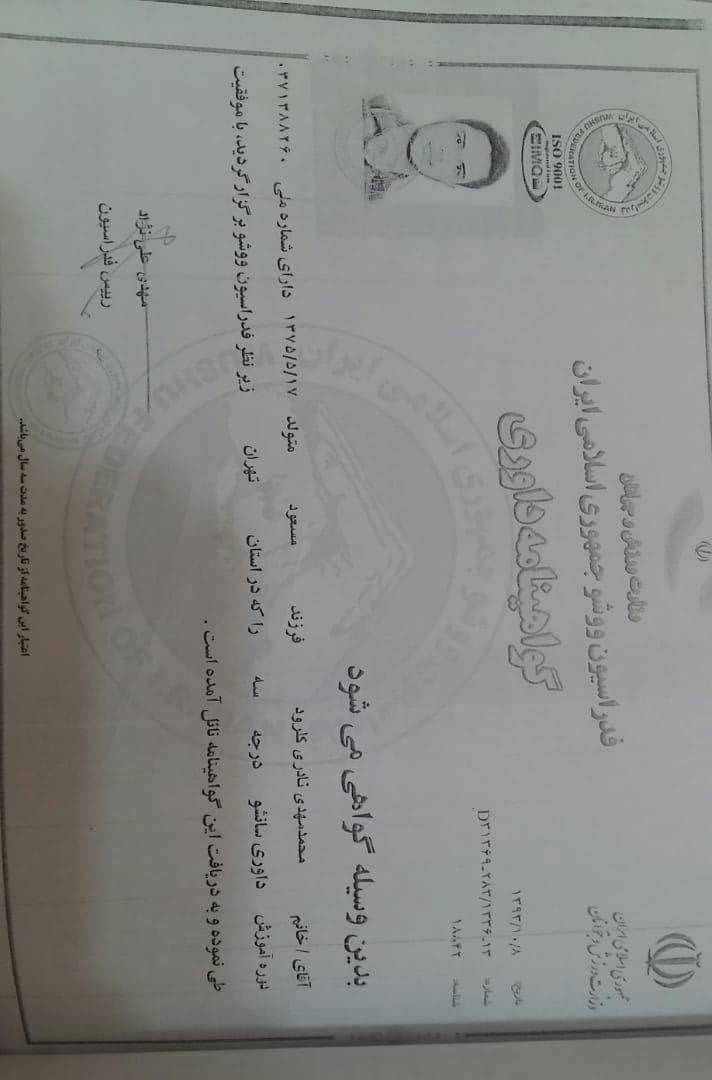 جمهوری اسلامی ایران
وزارت ورزش و جوانان
وزارت ورزش و جوانان
فدراسیون ووشو جمهوری اسلامی ایران
گواهینامه داوری
WUSHU FEDERATION OF I.R.IRAN
ISO 9001
IMQ
تاریخ: ۱۳۹۲/۱۰/۸
شماره: D۳۱۳۶۹-۲۸۳/۱۳۳۶-۱۳
شناسه: ۱۸۸۴۲
بدین وسیله گواهی می شود
آقای / خانم محمدمهدی نادری کلرود فرزند مسعود متولد ۱۳۷۵/۵/۱۷ دارای شماره ملی ۰۳۷۱۳۸۸۲۶۰
دوره آموزش داوری سانشو درجه سه را که در استان تهران زیر نظر فدراسیون ووشو برگزار گردید، با موفقیت
طی نموده و به دریافت این گواهینامه نائل آمده است .
مهدی علی نژاد
رییس فدراسیون
اعتبار این گواهینامه از تاریخ صدور به مدت سه سال می‌باشد.